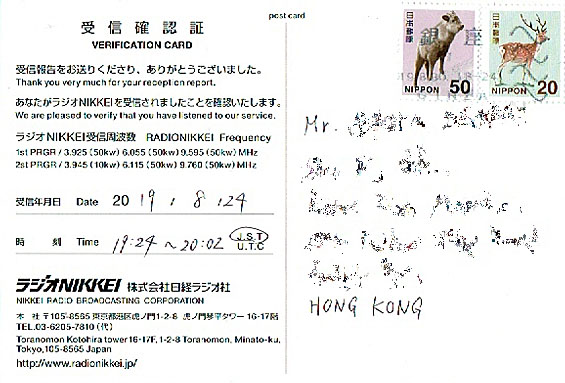 post card
受 信 確 認 証
VERIFICATION CARD
受信報告をお送りくださり、ありがとうございました。
Thank you very much for your reception report.
あなたがラジオNIKKEIを受信されましたことを確認いたします。
We are pleased to verify that you have listened to our service.
ラジオNIKKEI受信周波数 RADIONIKKEI Frequency
1st PRGR / 3.925 (50kw) 6.055 (50kw) 9.595 (50kw) MHz
2st PRGR / 3.945 (10kw) 6.115 (50kw) 9.760 (50kw) MHz
受信年月日 Date 2019.8.24
時 刻 Time 19:24~20:02 J.S.T
U.T.C
ラジオNIKKEI 株式会社日経ラジオ社
NIKKEI RADIO BROADCASTING CORPORATION
本 社 〒105-8565 東京都港区虎ノ門1-2-8 虎ノ門琴平タワー 16-17階
TEL.03-6205-7810 (代)
Toranomon Kotohira tower 16-17F, 1-2-8 Toranomon, Minato-ku,
Tokyo, 105-8565 Japan
http://www.radionikkei.jp/
日本郵便
50
NIPPON
日本郵便
20
NIPPON
銀 座
Mr.
HONG KONG